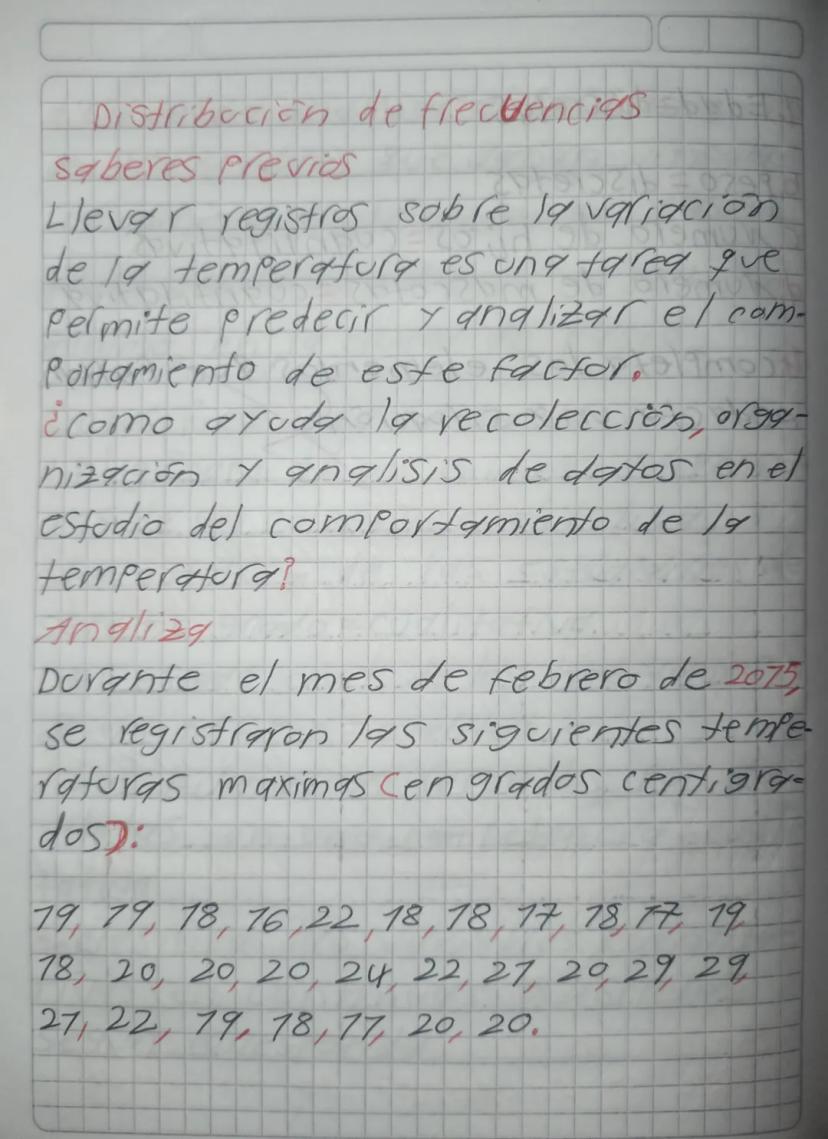 Distribución de frecuencias
saberes previos
Llevar registros sobre la variación
de la temperatura es una tarea que
permite predecir y analizar el com-
portamiento de este factor.
¿como ayuda la recolección, orga-
nización y analisis de datos en el
estudio del comportamiento de la
temperatura?
Analiza
Durante el mes de febrero de 2015,
se registraron las siguientes tempe-
raturas maximas (en grados centigra-
dos):
19, 19, 18, 16, 22, 18, 18, 17, 18, 17, 19,
18, 20, 20, 20, 24, 22, 21, 20, 29, 29,
21, 22, 19, 18, 17, 20, 20.